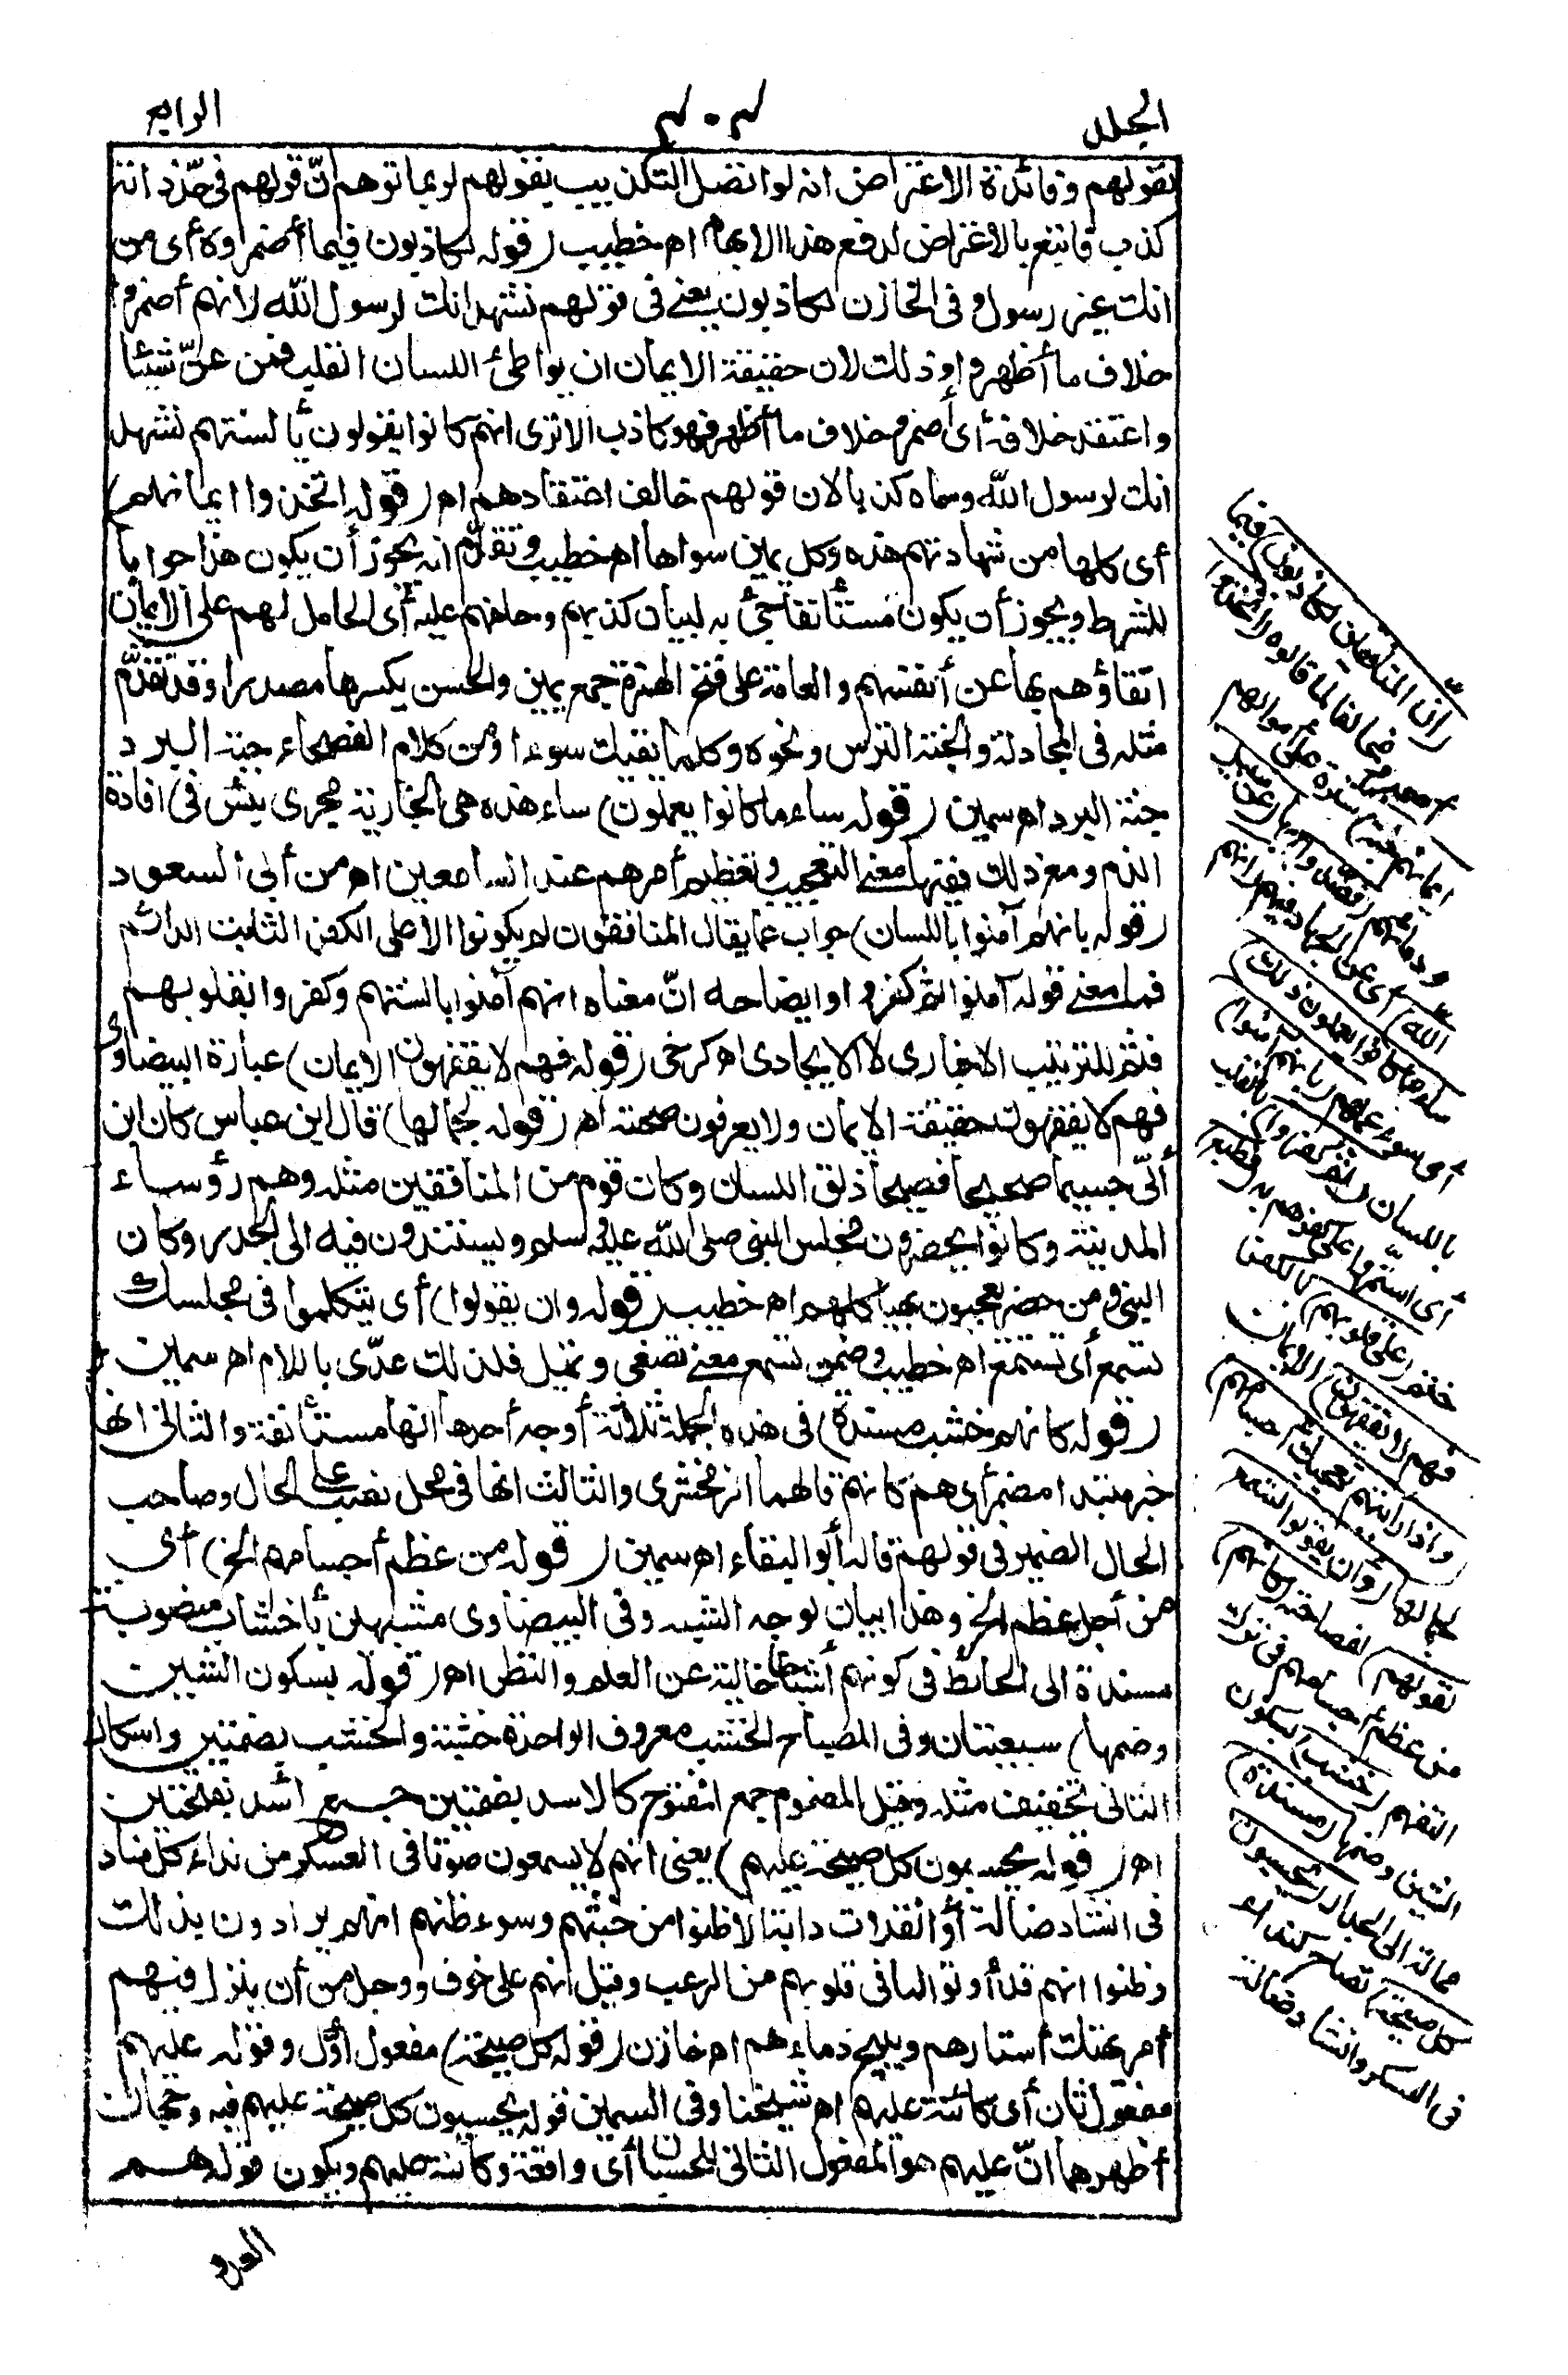 الجلد
٤٠٤
الرابع
بقولهم وفائدة الاعتراض انه لو اتصل التكذيب بقولهم لربما توهم انّ قولهم فى حدّ ذاته
كذب فاتى بالاعتراض لدفع هذا الايهام اه خطيب (قوله لكاذبون فيما أضمروه أى من
انك غير رسول وفى الخازن لكاذبون يعنى فى قولهم نشهد انك لرسول الله لانهم أضمروا
خلاف ما أظهروا وذلك لان حقيقة الايمان ان يواطئ اللسان القلب فمن شيئا
واعتقد خلافه أى أضمر خلاف ما أظهر فهو كاذب الا ترى انهم كانوا يقولون بألسنتهم نشهد
انك لرسول الله وسماه كذبا لان قولهم خالف اعتقادهم اه (قوله اتخذوا ايمانهم)
أى كلها من شهادتهم هذه وكل يمين سواها اه خطيب وتقدّم انه يجوز أن يكون هذا جوابا
للشرط ويجوز أن يكون مستأنفا جئ به لبيان كذبهم وحلفهم عليه أى الحامل لهم على الايمان
اتقاؤهم بها عن أنفسهم والعامة على فتح الهمزة جمع يمين والحسن بكسرها مصدرا وقد تقدّم
مثله فى المجادلة والجنة الترس ونحوه وكلما يقيك سوءا ومن كلام الفصحاء جبة البرد
جنة البرد اه سمين (قوله ساء ما كانوا يعملون) ساء هذه هى الجارية مجرى بئس فى افادة
الذم ومع ذلك ففيها معنى التعجيب وتعظيم أمرهم عند السامعين اه من أبى السعود
(قوله بانهم آمنوا باللسان) جواب عما يقال المنافقون لم يكونوا الا على الكفر الثابت الدائم
فما معنى قوله آمنوا ثم كفروا وايضاحه انّ معناه انهم آمنوا بالسنتهم وكفروا بقلوبهم
فثم للترتيب الاخبارى لا الايجادى اه كرخى (قوله فهم لا يفقهون الايمان) عبارة البيضاوى
فهم لا يفقهون حقيقة الايمان ولا يعرفون صحته اه (قوله لجمالها) قال ابن عباس كان ابن
أبىّ جسيما صحيحا فصيحا ذلق اللسان وكان قوم من المنافقين مثله وهم رؤساء
المدينة وكانوا يحضرون مجلس النبى صلى الله عليه وسلم ويستندون فيه الى الجدر وكان
النبى ومن حضر يعجبون بهياكلهم اه خطيب (قوله وان يقولوا) أى يتكلموا فى مجلسك
تسمع أى تستمع اه خطيب وضمن تسمع معنى تصغى وتميل فلذلك عدّى باللام اه سمين
(قوله كانهم خشب مسندة) فى هذه الجملة ثلاثة أوجه أحدها انها مستأنفة والثانى انها
خبر مبتدا مضمر أى هم كانهم قالهما الزمخشرى والثالث انها فى محل نصب على الحال وصاحب
الحال الضمير فى قولهم قاله أبو البقاء اه سمين (قوله من عظم أجسامهم الخ) أى
من أجل عظم الخ وهذا بيان لوجه الشبه وفى البيضاوى مشبهين بأخشاب منصوبة
مسندة الى الحائط فى كونهم أشباحا خالية عن العلم والنظر اه (قوله بسكون الشين
وضمها) سبعيتان وفى المصباح الخشب معروف الواحدة خشبة والخشب بضمتين واسكان
الثانى تخفيف مثله وقيل المضموم جمع المفتوح كالاسد بضمتين جمع أسد بفتحتين
اه (قوله يحسبون كل صيحة عليهم) يعنى انهم لا يسمعون صوتا فى العسكر من نداء كل مناد
فى انشاد ضالة أو انفلات دابة الا ظنوا من خبثهم وسوء ظنهم انهم يرادون بذلك
وظنوا انهم قد أوتوا لما فى قلوبهم من الرعب وقيل انهم على خوف ووجل من أن ينزل فيهم
أمر يهتك أستارهم ويبيح دماءهم اه خازن (قوله كل صيحة) مفعول أوّل وقوله عليهم
مفعول ثان أى كائنة عليهم اه شيخنا وفى السمين قوله يحسبون كل صيحة عليهم فيه وجهان
أظهرهما انّ عليهم هو المفعول الثانى للحسبان أى واقعة وكائنة عليهم ويكون قوله هم
العدو
(انّ المنافقين لكاذبون) فيما
أضمروه مخالفا لما قالوه (اتخذوا
ايمانهم جنة) سترة على أموالهم
ودمائهم (فصدّوا) بها (عن سبيل
الله) أى عن الجهاد فيهم (انهم
ساء ما كانوا يعملون ذلك)
أى سوء عملهم (بانهم آمنوا)
باللسان (ثم كفروا) بالقلب
أى استمرّوا على كفرهم به (فطبع)
ختم (على قلوبهم) بالكفر
(فهم لا يفقهون) الايمان
(واذا رأيتهم تعجبك أجسامهم)
لجمالها (وان يقولوا تسمع
لقولهم) لفصاحته (كانهم)
من عظم أجسامهم فى ترك
التفهم (خشب) بسكون
الشين وضمها (مسندة)
ممالة الى الجدار (يحسبون
كل صيحة) تصاح كنداء
فى العسكر وانشاد ضالة